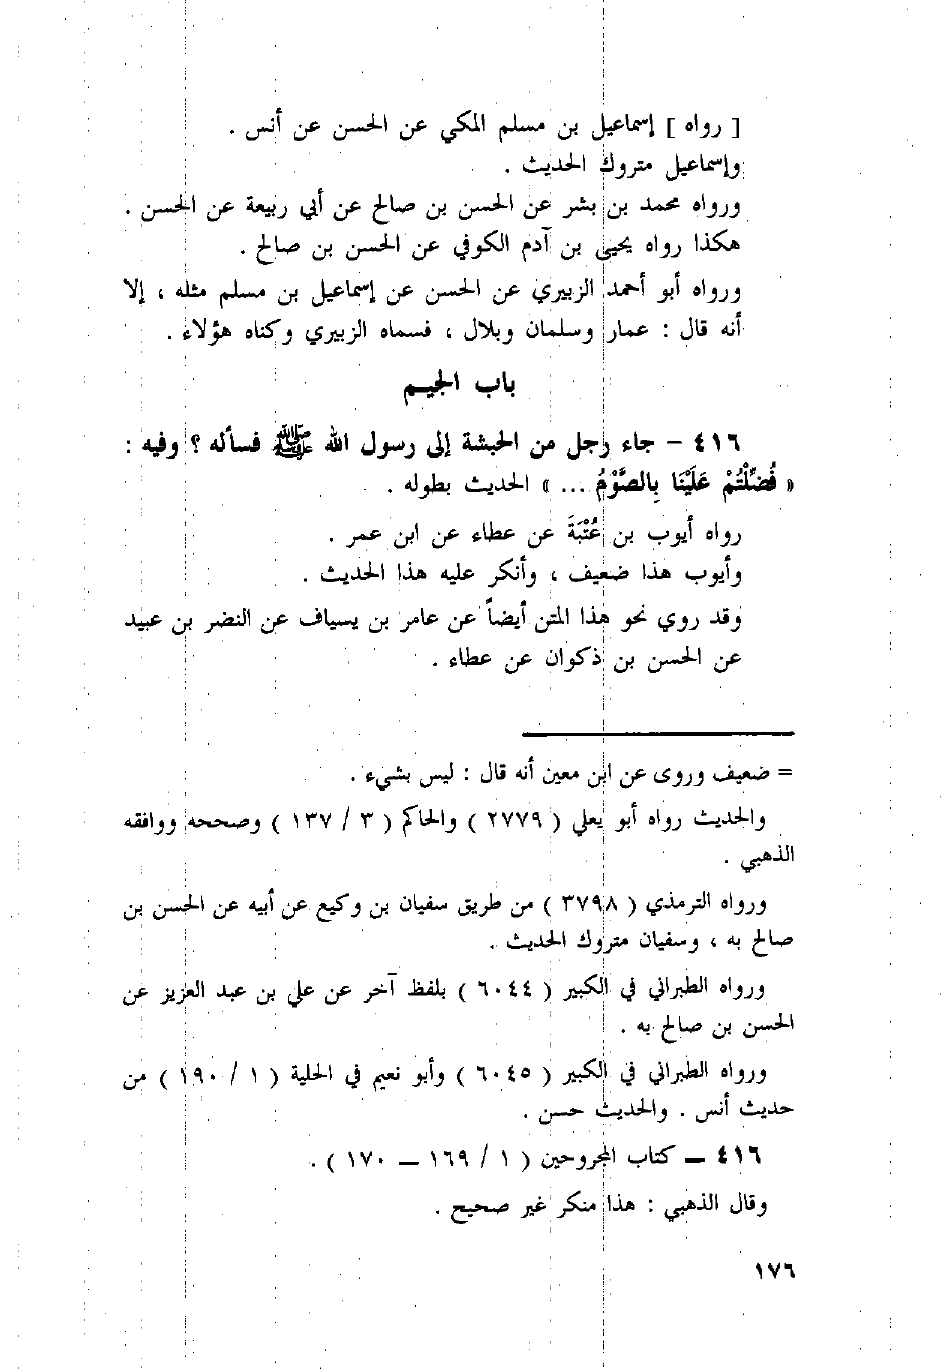 [ رواه ] إسماعيل بن مسلم المكي عن الحسن عن أنس .
وإسماعيل متروك الحديث .
ورواه محمد بن بشر عن الحسن بن صالح عن أبي ربيعة عن الحسن .
هكذا رواه يحيى بن آدم الكوفي عن الحسن بن صالح .
ورواه أبو أحمد الزبيري عن الحسن عن إسماعيل بن مسلم مثله ، إلا
أنه قال : عمار وسلمان وبلال ، فسماه الزبيري وكناه هؤلاء .
باب الجيم
٤١٦ - جاء رجل من الحبشة إلى رسول الله ﷺ فسأله ؟ وفيه :
« فُضِّلْتُمْ عَلَيْنَا بِالصَّوْمُ ... » الحديث بطوله .
رواه أيوب بن عُتْبَةَ عن عطاء عن ابن عمر .
وأيوب هذا ضعيف ، وأنكر عليه هذا الحديث .
وقد روي نحو هذا المتن أيضاً عن عامر بن يسياف عن النضر بن عبيد
عن الحسن بن ذكوان عن عطاء .
= ضعيف وروى عن ابن معين أنه قال : ليس بشيء .
والحديث رواه أبو يعلي ( ٢٧٧٩ ) والحاكم ( ٣ / ١٣٧ ) وصححه ووافقه
الذهبي .
ورواه الترمذي ( ٣٧٩٨ ) من طريق سفيان بن وكيع عن أبيه عن الحسن بن
صالح به ، وسفيان متروك الحديث .
ورواه الطبراني في الكبير ( ٦٠٤٤ ) بلفظ آخر عن علي بن عبد العزيز عن
الحسن بن صالح به .
ورواه الطبراني في الكبير ( ٦٠٤٥ ) وأبو نعيم في الحلية ( ١ / ١٩٠ ) من
حديث أنس . والحديث حسن .
٤١٦ ــ كتاب المجروحين ( ١ / ١٦٩ ــ ١٧٠ ) .
وقال الذهبي : هذا منكر غير صحيح .
١٧٦